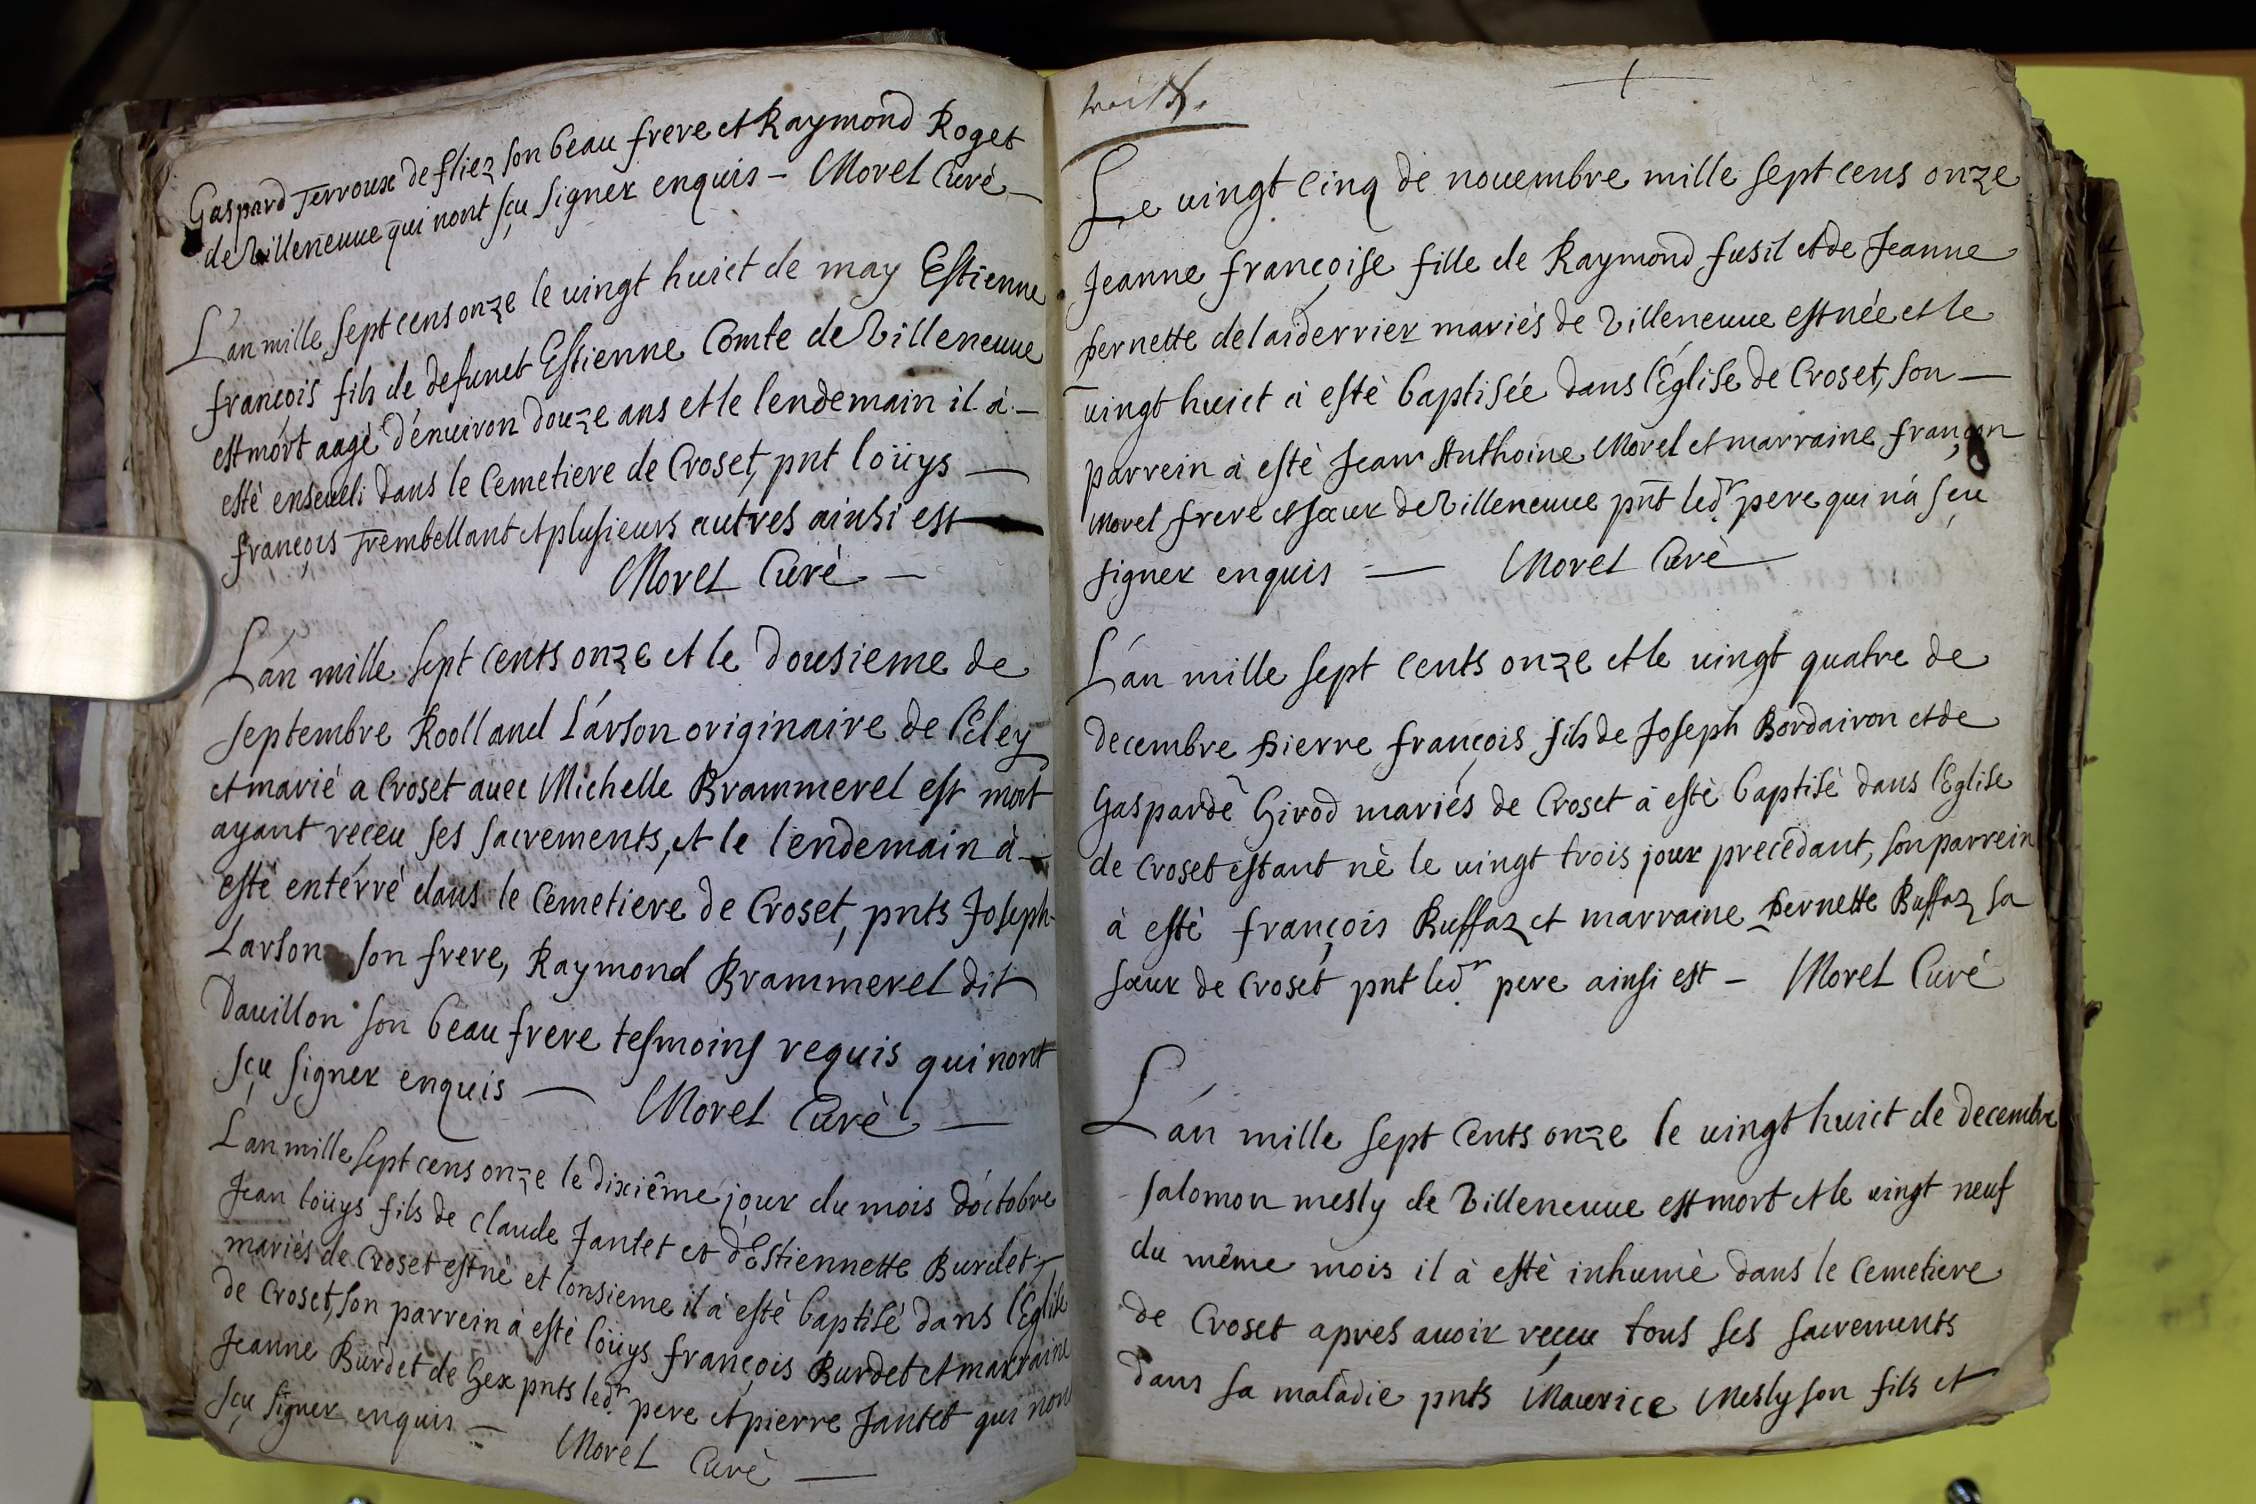 Gaspard Terroux de fliez son beau frere et Raymond Roget
de Villeneuue qui nont sçu signer enquis - Morel Curé
L'an mille sept cens onze le uingt huict de may Estienne
françois fils de defunct Estienne Comte de Villeneuue
est mort aagé d'enuiron douze ans et le lendemain il à
esté enseueli dans le Cemetiere de Croset, pnt loüys
françois Trembellant et plusieurs autres ainsi est
Morel Curé
L'an mille sept cents onze et le dousieme de
septembre Roolland Larson originaire de
et marié a Croset auec Michelle Brammerel est mort
ayant reçeu ses sacrements, et le lendemain à
esté entérré dans le Cemetiere de Croset, pnts Joseph
Larson son frere, Raymond Brammerel dit
Dauillon son beau frere tesmoins requis qui nont
sçu signer enquis Morel Curé
L'an mille sept cens onze le dixiême jour du mois d'octobre
Jean loüys fils de Claude Jantet et d'Estiennette Burdet
mariés de Croset est né et l'onsieme il à esté baptisé dans l'Eglise
de Croset, son parrein à esté loüys françois Burdet et marraine
Jeanne Burdet de Gex pnts led.r pere et pierre Jantet qui nont
sçu signer enquis
Morel Curé
Le uingt cinq de nouembre mille sept cens onze
Jeanne françoise fille de Raymond fusil et de Jeanne
pernette delaiderrier mariés de Villeneuue est née et le
uingt huict à esté baptisée dans l'Église de Croset, son
parrein à esté Jean Anthoine Morel et marraine françon
Morel frere et sœur de Villeneuue pnt led.r pere qui n'à sçu
signer enquis Morel Curé
L'an mille sept cents onze et le uingt quatre de
decembre pierre françois fils de Joseph Bordairon et de
Gasparde Girod mariés de Croset à esté baptisé dans l'Eglise
de Croset estant né le uingt trois jour precedant, son parrein
à esté françois Buffaz et marraine pernette Buffaz sa
sœur de Croset pnt led.r pere ainsi est - Morel Curé
L'an mille sept cents onze le uingt huict de decembre
salomon mesly de Villeneuue est mort et le uingt neuf
du même mois il à esté inhumé dans le Cemetiere
de Croset apres auoir reçeu tous ses sacrements
dans sa maladie pnts Maurice Mesly son fils et